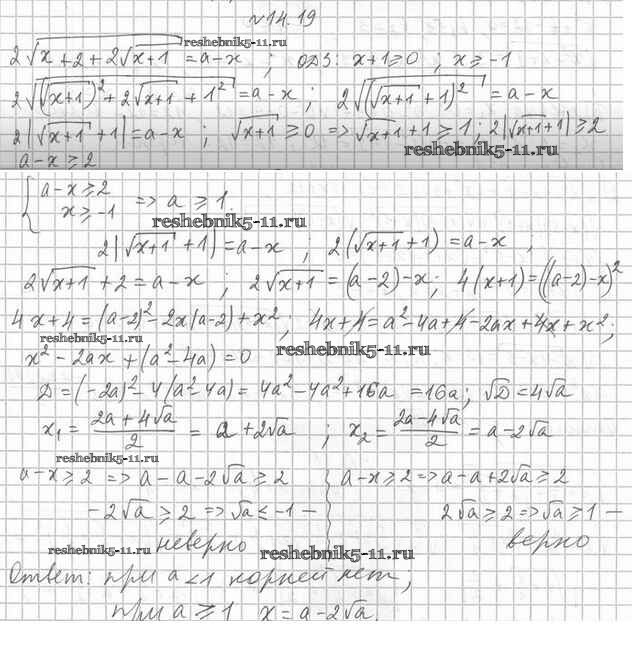 №14.19
2√(x+2+2√(x+1)) = a-x ; ОДЗ: x+1≥0 ; x≥-1
reshebnik5-11.ru
2√((√(x+1))²+2√(x+1)+1²) = a-x ; 2√((√(x+1)+1)²) = a-x
2|√(x+1)+1| = a-x ; √(x+1) ≥ 0 => √(x+1)+1 ≥ 1 ; 2|√(x+1)+1| ≥ 2
reshebnik5-11.ru
a-x ≥ 2
{ a-x≥2
x≥-1 => a ≥ 1.
reshebnik5-11.ru
2|√(x+1)+1| = a-x ; 2(√(x+1)+1) = a-x ;
2√(x+1)+2 = a-x ; 2√(x+1) = (a-2)-x ; 4(x+1) = ((a-2)-x)²
4x+4 = (a-2)²-2x(a-2)+x² ; 4x+4 = a²-4a+4-2ax+4x+x² ;
reshebnik5-11.ru
reshebnik5-11.ru
x²-2ax+(a²-4a) = 0
D = (-2a)²-4(a²-4a) = 4a²-4a²+16a = 16a ; √D = 4√a
x₁ = (2a+4√a)/2 = a+2√a ; x₂ = (2a-4√a)/2 = a-2√a
reshebnik5-11.ru
a-x≥2 => a-a-2√a ≥ 2 a-x≥2 => a-a+2√a ≥ 2
-2√a ≥ 2 => √a ≤ -1 - 2√a ≥ 2 => √a ≥ 1 -
неверно верно
reshebnik5-11.ru
reshebnik5-11.ru
Ответ: при a<1 корней нет,
при a ≥ 1 x = a-2√a.